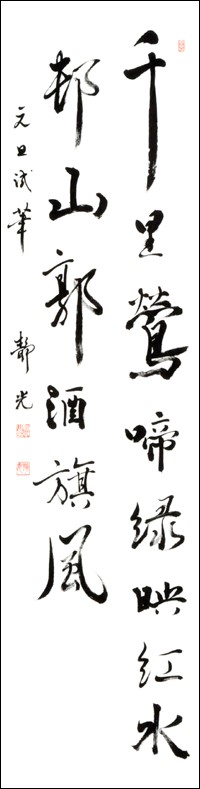 千里鶯啼緑映紅水
邨山郭酒旗風
元旦試筆 靜光